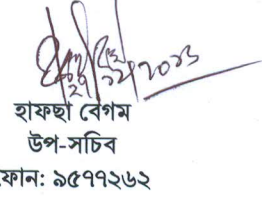 হাফছা বেগম
উপ-সচিব
ফোন: ৯৫৭৭২৬২